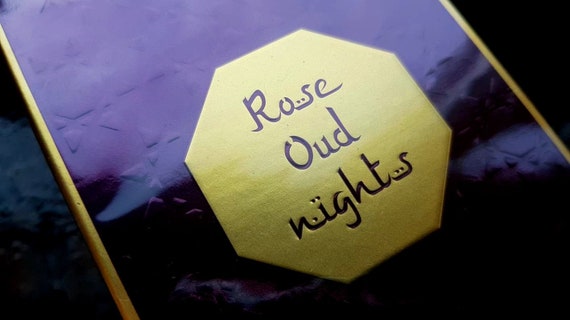 Rose
Oud
nights